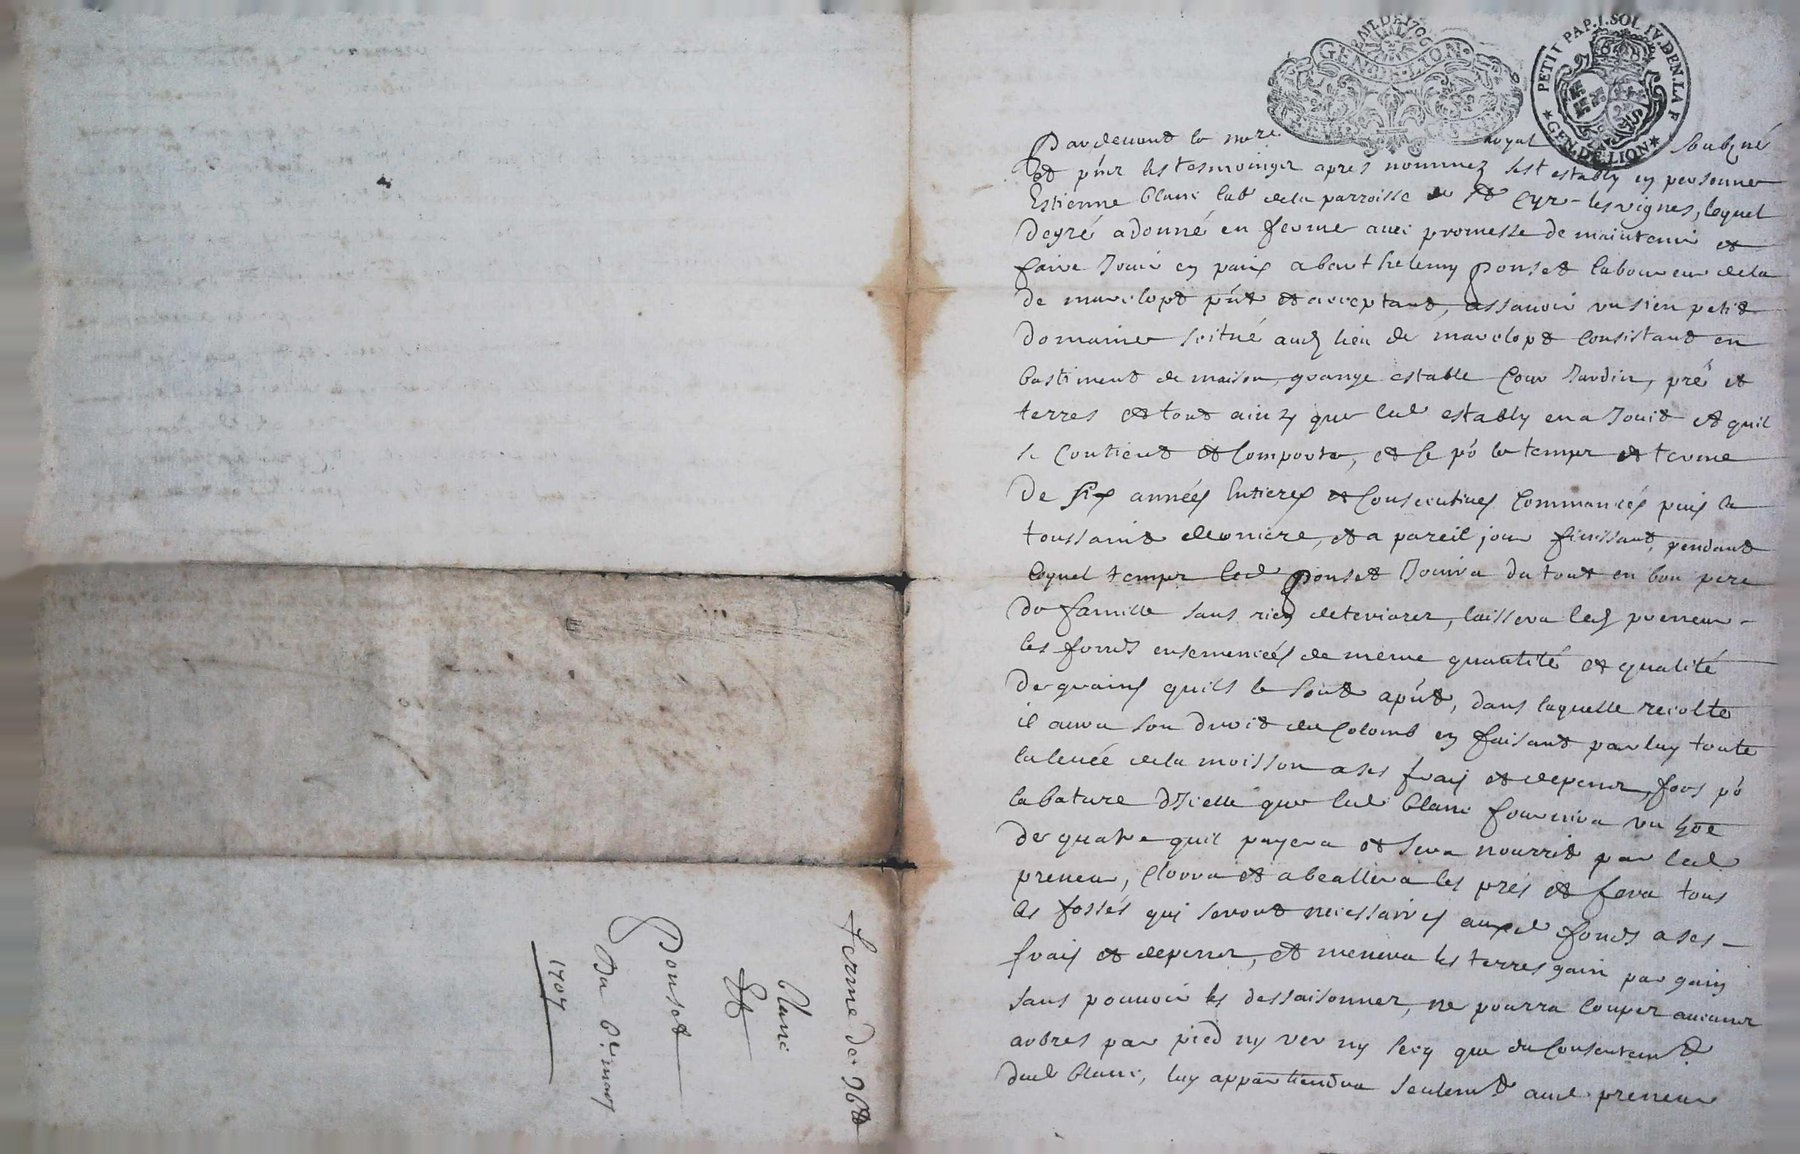 BAIL DE 1706
GEN. DE LION
PETI PAP. I. SOL IV. DEN. LA F
GEN. DE LION
Pardevant le no.re royal soubzné
et pńtz les tesmoingz apres nommez sest estably en personne
Estienne blanc lab.r de la parroisse de St Cyr-les vignes, lequel
de gré a donné en ferme avec promesse de maintenir et
faire Jouir en paix a barthelemy ponset laboureur de la
de marclopt pńt et acceptant, assavoir un sien petit
domaine scitué aud lieu de marclopt Consistant en
bastiment de maison, grange estable Cour Jardin, pré et
terres et tout ainzy que led estably en a Jouit et quil
se Contient et Comporte, et Ce po le temps et terme
de six années Entieres et Consecutives Commancées puis la
toussaint derniere, et a pareil jour finissant, pendant
lequel temps led ponset Jouira du tout en bon pere
de famille sans rien deteriorer, laissera led preneur
les fonds ensemencés de meme quantité et qualité
de grains quils le sont apńt, dans laquelle recolte
il aura son droit de Colomb en faisant par luy toute
la levée de la moisson a ses frais et depens, fors po
la bature dJcelle que led blanc fournira un hoe
de quatre quil payera et sera nourrit par led
preneur, Clorra et abeallera les prés et fera tous
les fossés qui seront necessaires auxd fonds a ses
frais et depens, et menera les terres gain par gain
sans pouvoir les dessaisonner, ne pourra Couper aucuns
arbres par pied ny ver ny secq que du Consentemt
dud blanc, luy appartiendra seulemt aud preneur
ferme de 36tt
Blanc
Et
Ponset
Du 6e mars
1707